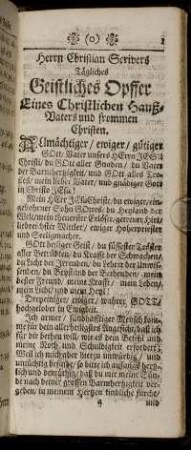 (o)
Herrn Christian Scrivers
Tägliches
Geistliches Opffer
Eines Christlichen Hauß-
Vaters und frommen
Christen.
Allmächtiger / ewiger / gütiger
GOtt / Vater unsers HErrn JESU
Christi / du GOtt aller Gnaden / du Vater
der Barmhertzigkeit / und GOtt alles Tro-
stes / mein lieber Vater / und gnädiger Gott
in Christo JEsu!
Mein HErr JEsu Christe / du ewiger / ein-
gebohrner Sohn GOttes / du Heyland der
Welt / mein Erlöser / getreuer Hirte
Mittler / ewiger Hoherpriester
und Seeligmacher.
GOtt heiliger Geist / du süssester Tröster
aller Betrübten / du Krafft der Schwachen /
du Licht der / du Lehrer der Unwis-
senden / du Beystand der Bethenden / mein
bester Freund / meine Krafft / mein Leben /
mein Licht / und mein Heyl!
Dreyeiniger / ewiger / wahrer GOTT /
hochgelobet in Ewigkeit.
Ich armer / sündhafftiger Mensch kom-
me für dein allerheiligstes Angesicht / daß ich
für dir bethen will / wie es dein Befehl und
meine Noth und Schuldigkeit erfordert:
Weil ich mich aber hierzu unwürdig / und
untüchtig befinde / so bitte ich anfangs hertz-
lich und demüthig / daß du mir meine Sün-
de nach deiner grossen Barmhertzigkeit ver-
geben / in meinem Hertzen kindliche Furcht /
und